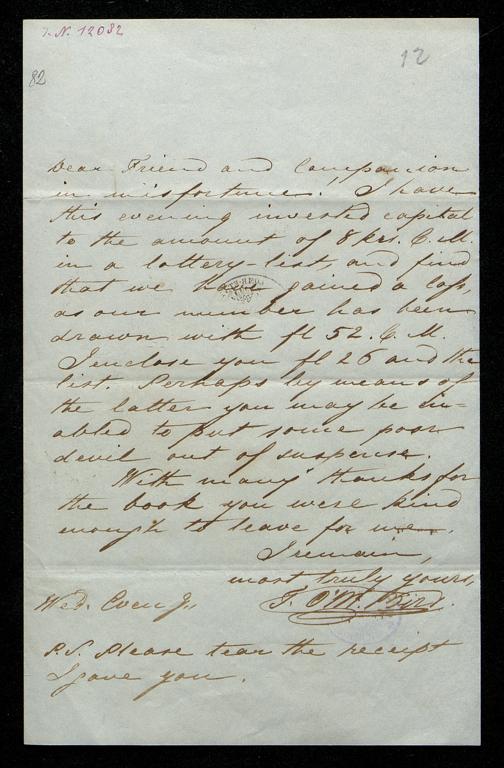 I. N. 12082
12
82
Dear Friend and Companion
in misfortune! I have
this evening invested capital
to the amount of 8 krs. C. M.
in a lottery-list, and find
that we have gained a loss,
as our number has been
drawn with fl 52. C. M.
I enclose you fl 26 and the
list. Perhaps by means of
the latter you may be in-
abled to put some poor
devil out of suspense.
With many thanks for
the book you were kind
enough to leave for me.
I remain,
most truly yours,
Wed. Eveng.
P.S. Please tear the receipt
I gave you.